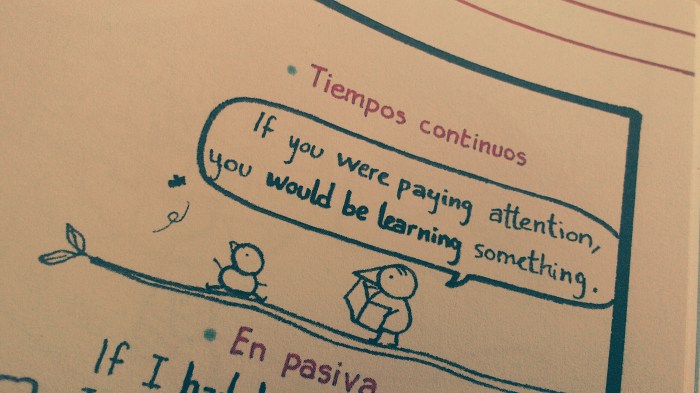 • Tiempos continuos
If you were paying attention,
you would be learning something.
• En pasiva
If I had